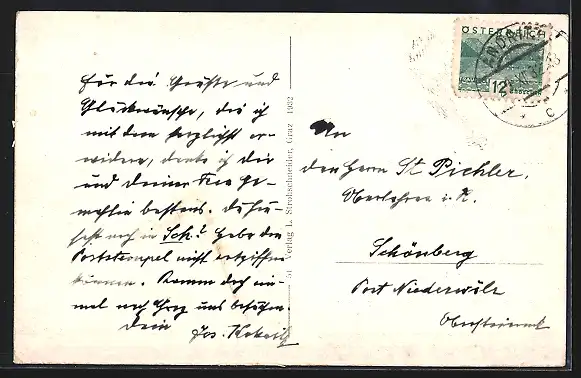 Für die Grüße und
Glückwünsche, die ich
mit dem herzlichst er-
widere, danke ich Dir
und Deiner Frau Ge-
mahlin bestens.
noch in Sch.? Habe den
Poststempel nicht entziffern
können. Komm doch ein-
mal nach Graz uns besuchen.
Dein
Jos.
51 Verlag L. Strohschneider, Graz 1932
ÖSTERREICH
12
GROSCHEN
An
den Herrn St. Pichler,
Oberlehrer i. R.
Schönberg
Post Niederwölz
Obersteiermark